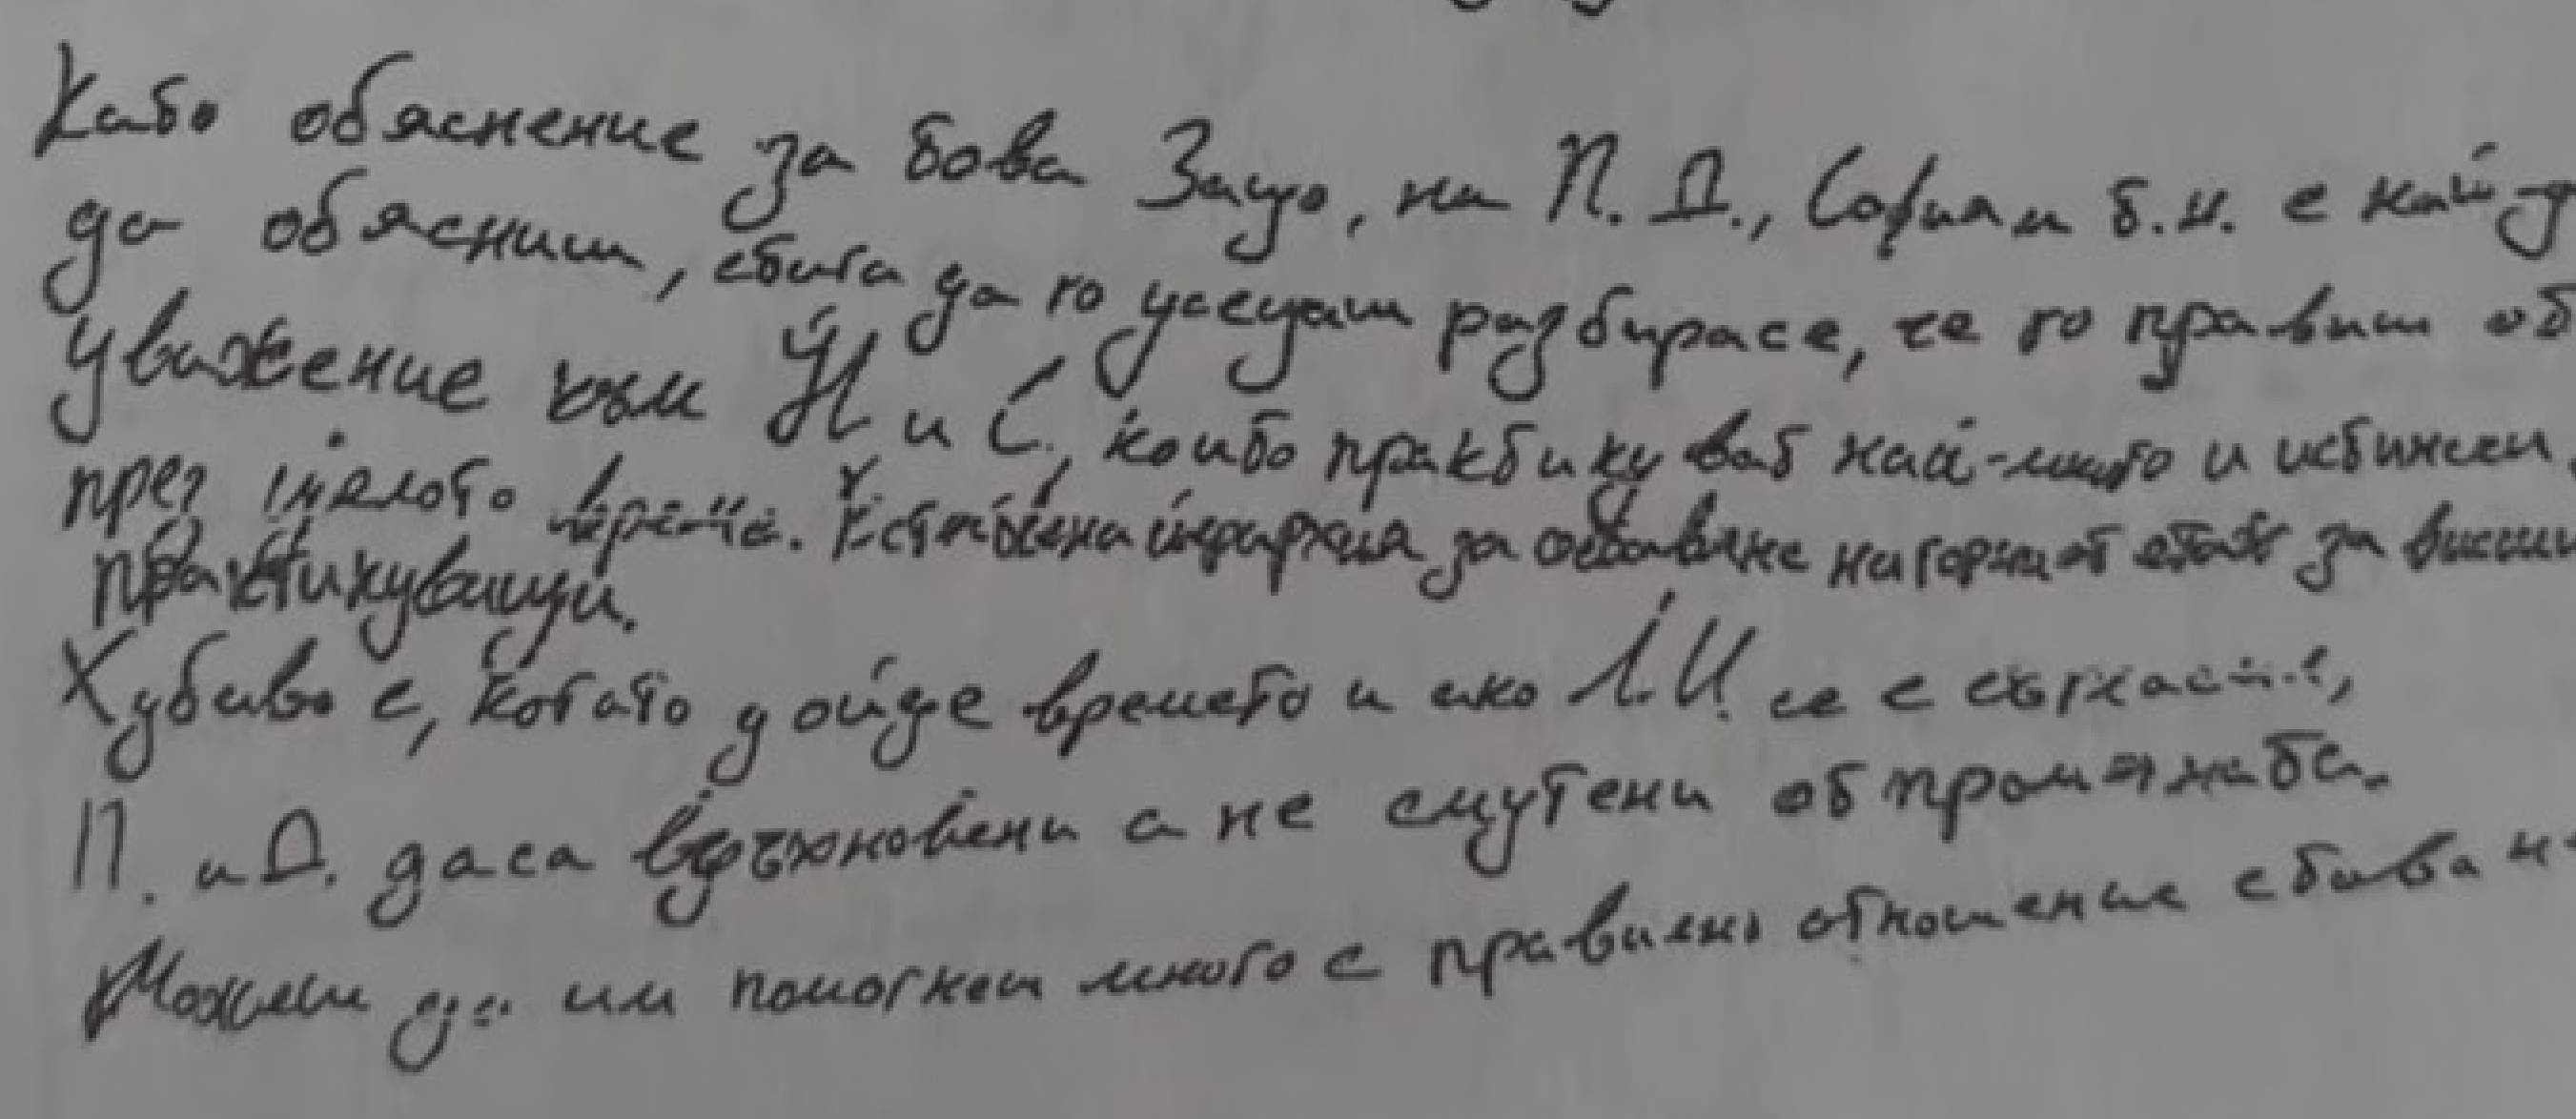 Като обяснение за това Защо, на П. Д., София и т.н. е най-д
да обясниш, стига да го усещаш разбирасе, че го правиш от
Уважение към Й и С., които практикуват най-много и истински
през цялото време. Естествена йерархия за оставяне на горният етаж за висши
практикуващи.
Хубаво е, когато дойде времето и ако Л.И. се е съгласил,
П. и Д. да са вдъхновени а не смутени от промяната.
Можеш да им помогнеш много с правилно отношение с това